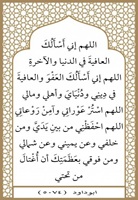 اللهم إني أَسْأَلُكَ
العافية في الدنيا والآخرةِ
اللهم إني أَسْأَلُكَ العَفْوَ والعافيةَ
في دِينِي ودُنْيَايَ وأهلي ومالي
اللهم اسْتُرْ عَوْراتي وآمِنْ رَوْعاتي
اللهم احْفَظْنِي من بينِ يَدَيَّ ومن
خلفي وعن يميني وعن شمالي
ومن فوقي بِعَظَمَتِكَ أن أُغْتَالَ
من تحتي
ابوداود (٥٠٧٤)